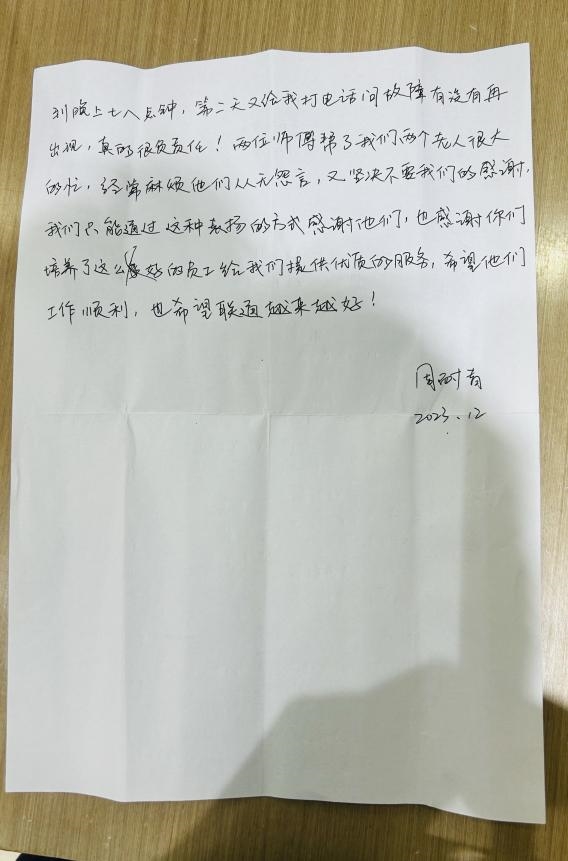 到晚上七八点钟，第二天又给我打电话问故障有没有再
出现，真的很负责任！两位师傅帮了我们两个老人很大
的忙，经常麻烦他们从无怨言，又坚决不要我们的感谢，
我们只能通过这种表扬的方式感谢他们，也感谢你们
培养了这么好的员工给我们提供优质的服务，希望他们
工作顺利，也希望联通越来越好！
周
2023.12